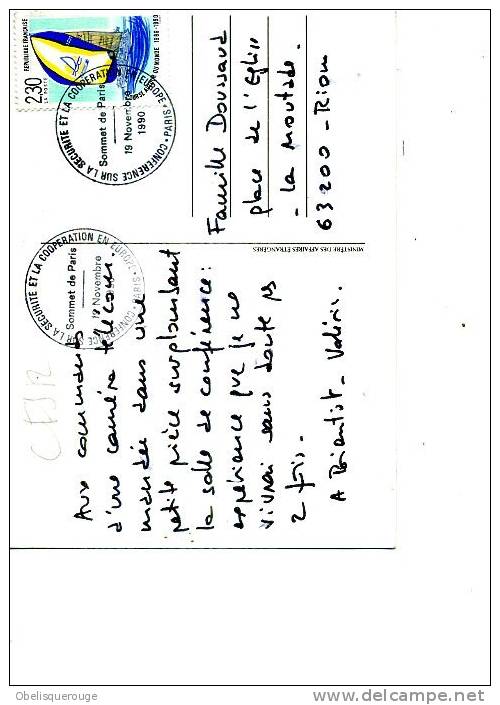 Aux commandes
d'une caméra télécom-
mandée dans une
petite pièce surplombant
la salle de conférence:
expérience que je ne
vivrai sans doute pas
2 fois.
A Bientôt - Valérie.
MINISTÈRE DES AFFAIRES ÉTRANGÈRES
Famille Doussaud
place de l'Eglise
- La Moutade -
63200 - Riom
RÉPUBLIQUE FRANÇAISE
2,30
LA POSTE
DU MONDE 1989-1990
CONFERENCE SUR LA SECURITE ET LA COOPERATION EN EUROPE • PARIS •
Sommet de Paris
19 Novembre
1990
CONFERENCE SUR LA SECURITE ET LA COOPERATION EN EUROPE • PARIS •
Sommet de Paris
19 Novembre
1990
Obelisquerouge
delcampe.net